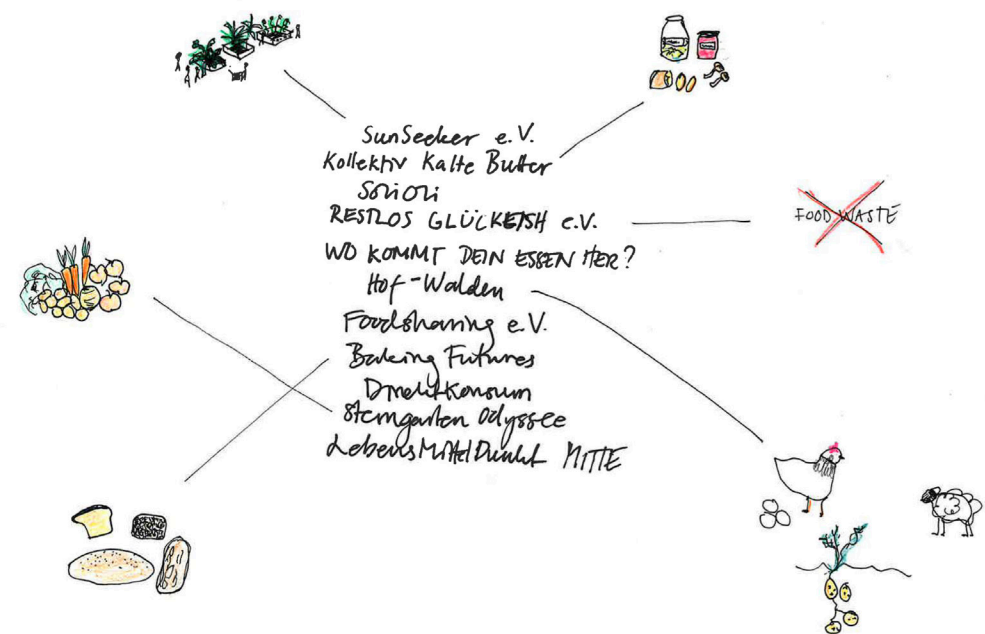 SunSeeker e.V.
Kollektiv Kalte Butter
SoliOli
RESTLOS GLÜCKLICH e.V.
FOOD WASTE
WO KOMMT DEIN ESSEN HER?
Hof-Walden
Foodsharing e.V.
Baking Futures
DirektKonsum
Sterngarten Odyssee
LebensMittelPunkt MITTE